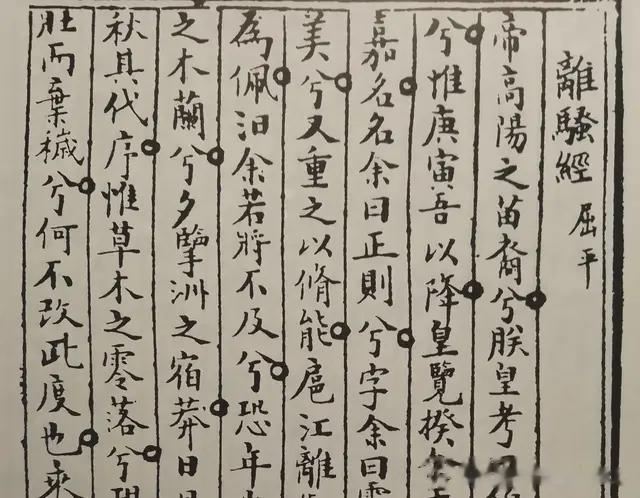 離騷經 屈平
帝高陽之苗裔兮朕皇考
兮惟庚寅吾以降皇覽揆余
嘉名名余曰正則兮字余曰靈
美兮又重之以脩能扈江離
為佩汩余若將不及兮恐年
之木蘭兮夕擥洲之宿莽日
秋其代序惟草木之零落兮恐
壯而棄穢兮何不改此度也乘